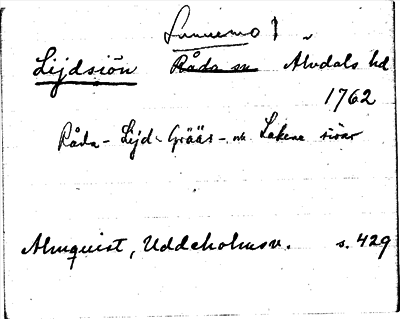 Sunnemo ↑ "
Lijdsiön Råda sn Älvdals hd
1762
Råda- Lijd- Grääs- och Lakene siöar
Almquist, Uddeholmsv. s. 429